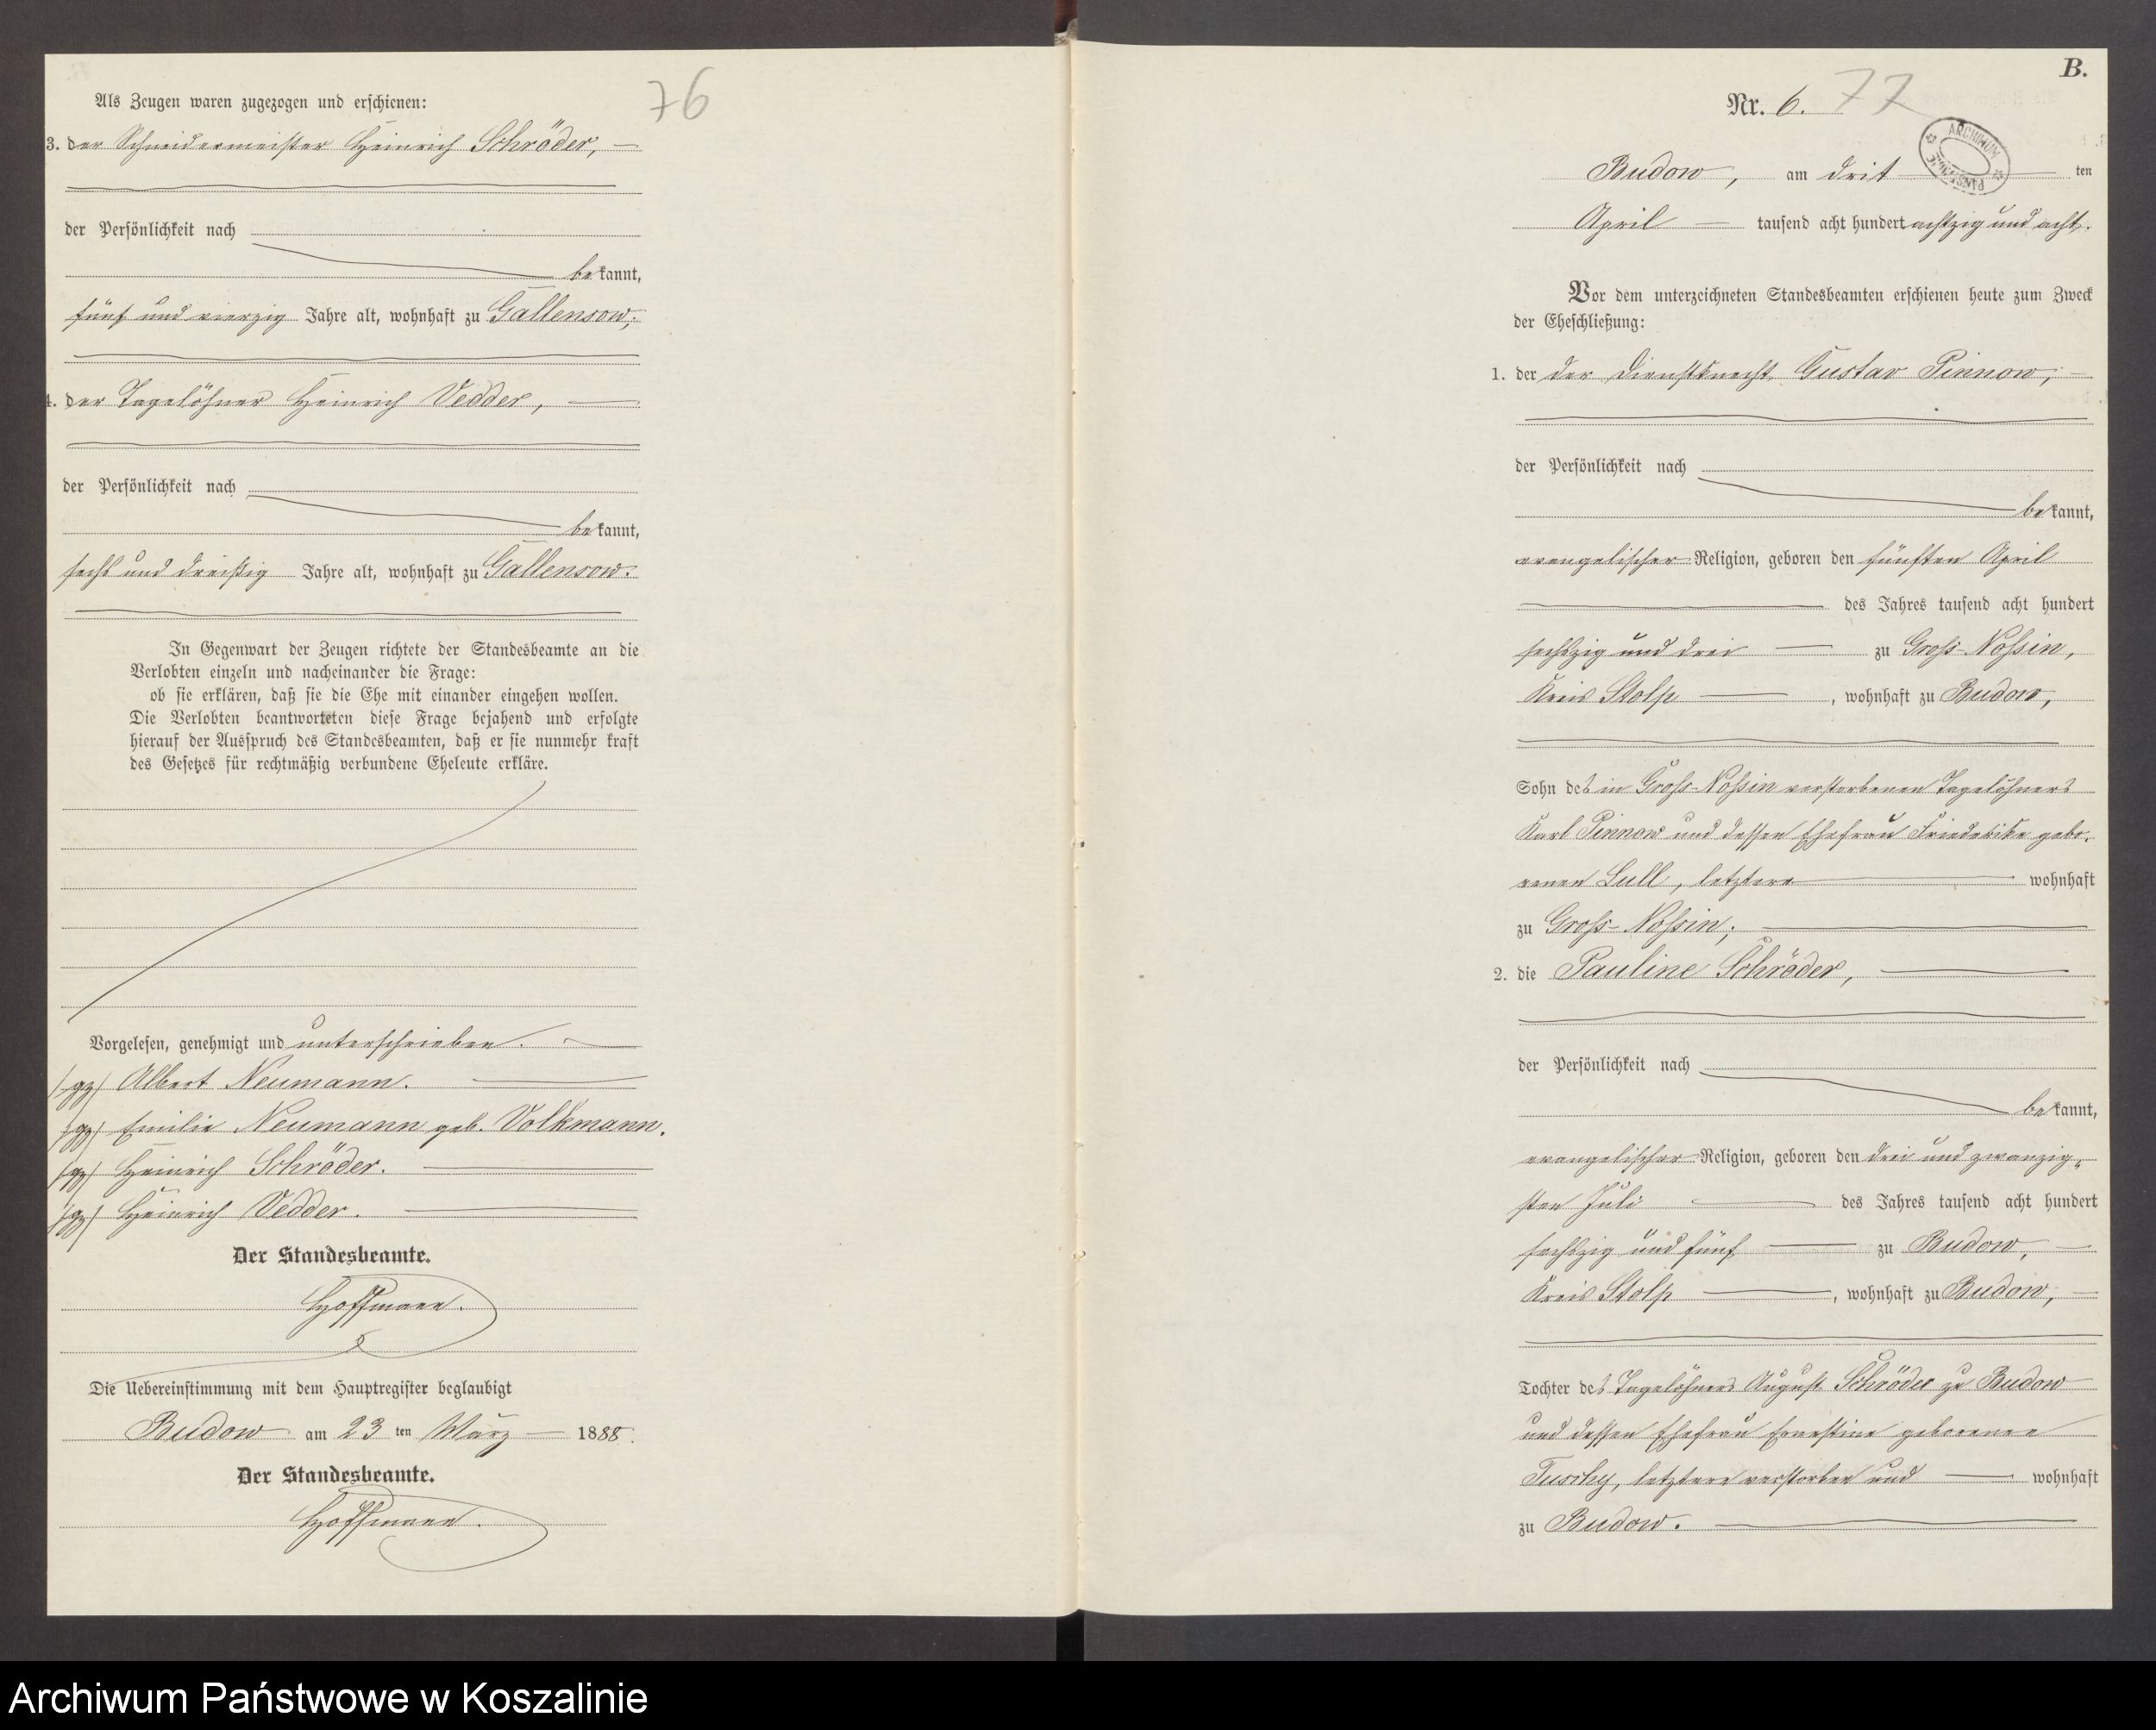 76
Als Zeugen waren zugezogen und erschienen:
3. der Schneidermeister Heinrich Schröder,
der Persönlichkeit nach
bekannt,
fünf und vierzig Jahre alt, wohnhaft zu Gallensow;
4. der Tagelöhner Heinrich Vedder,
der Persönlichkeit nach
bekannt,
sechs und dreißig Jahre alt, wohnhaft zu Gallensow.
In Gegenwart der Zeugen richtete der Standesbeamte an die
Verlobten einzeln und nacheinander die Frage:
ob sie erklären, daß sie die Ehe mit einander eingehen wollen.
Die Verlobten beantworteten diese Frage bejahend und erfolgte
hierauf der Ausspruch des Standesbeamten, daß er sie nunmehr kraft
des Gesetzes für rechtmäßig verbundene Eheleute erkläre.
Vorgelesen, genehmigt und unterschrieben.
/gz/ Albert Neumann.
/gz/ Emilie Neumann geb. Volkmann.
/gz/ Heinrich Schröder.
/gz/ Heinrich Vedder.
Der Standesbeamte.
Hoffmann.
Die Uebereinstimmung mit dem Hauptregister beglaubigt
Budow am 23 ten März 1888.
Der Standesbeamte.
Hoffmann.
B.
Nr. 6. 77
ARCHIWUM
Budow, am drit ten
April tausend acht hundert achtzig und acht.
Vor dem unterzeichneten Standesbeamten erschienen heute zum Zweck
der Eheschließung:
1. der der Dienstknecht Gustav Pinnow;
der Persönlichkeit nach
bekannt,
evangelischer Religion, geboren den fünften April
des Jahres tausend acht hundert
sechszig und drei zu Groß-Nossin,
Kreis Stolp, wohnhaft zu Budow,
Sohn des in Groß-Nossin verstorbenen Tagelöhners
Karl Pinnow und dessen Ehefrau Friederike gebo-
renen Lull, letztere wohnhaft
zu Groß-Nossin;
2. die Pauline Schröder,
der Persönlichkeit nach
bekannt,
evangelischer Religion, geboren den drei und zwanzig-
sten Juli des Jahres tausend acht hundert
sechszig und fünf zu Budow,
Kreis Stolp, wohnhaft zu Budow,
Tochter des Tagelöhners August Schröder zu Budow
und dessen Ehefrau Ernestine geborenen
Tuschy, letztere verstorben und wohnhaft
zu Budow.
Archiwum Państwowe w Koszalinie